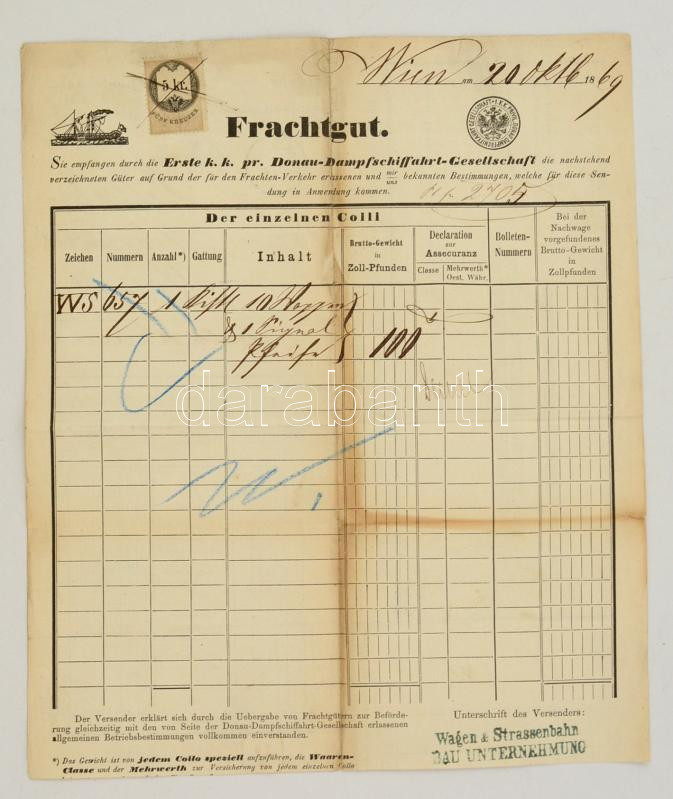 Wien am 20 Oktb 1869
5 kr.
FÜNF KREUZER
Frachtgut.
Sie empfangen durch die Erste k. k. pr. Donau-Dampfschiffahrt-Gesellschaft die nachstehend
verzeichneten Güter auf Grund der für den Frachten-Verkehr erlassenen und mir/uns bekannten Bestimmungen, welche für diese Sen-
dung in Anwendung kommen.
2705
Der einzelnen Colli
Zeichen
Nummern
Anzahl*)
Gattung
Inhalt
Brutto-Gewicht
in
Zoll-Pfunden
Declaration
zur
Assecuranz
Classe
Mehrwerth*
Oest. Währ.
Bolleten-
Nummern
Bei der
Nachwage
vorgefundenes
Brutto-Gewicht
in
Zollpfunden
WS 657 1 Kiste 10 Wappen
& 1 Signal
Pfeife 100
darabanth
Der Versender erklärt sich durch die Uebergabe von Frachtgütern zur Beförde-
rung gleichzeitig mit den von Seite der Donau-Dampfschiffahrt-Gesellschaft erlassenen
allgemeinen Betriebsbestimmungen vollkommen einverstanden.
Unterschrift des Versenders:
Wagen & Strassenbahn
BAU UNTERNEHMUNG
*) Das Gewicht ist von jedem Collo speziell aufzuführen, die Waaren-
Classe und der Mehrwerth zur Versicherung von jedem einzelnen Collo